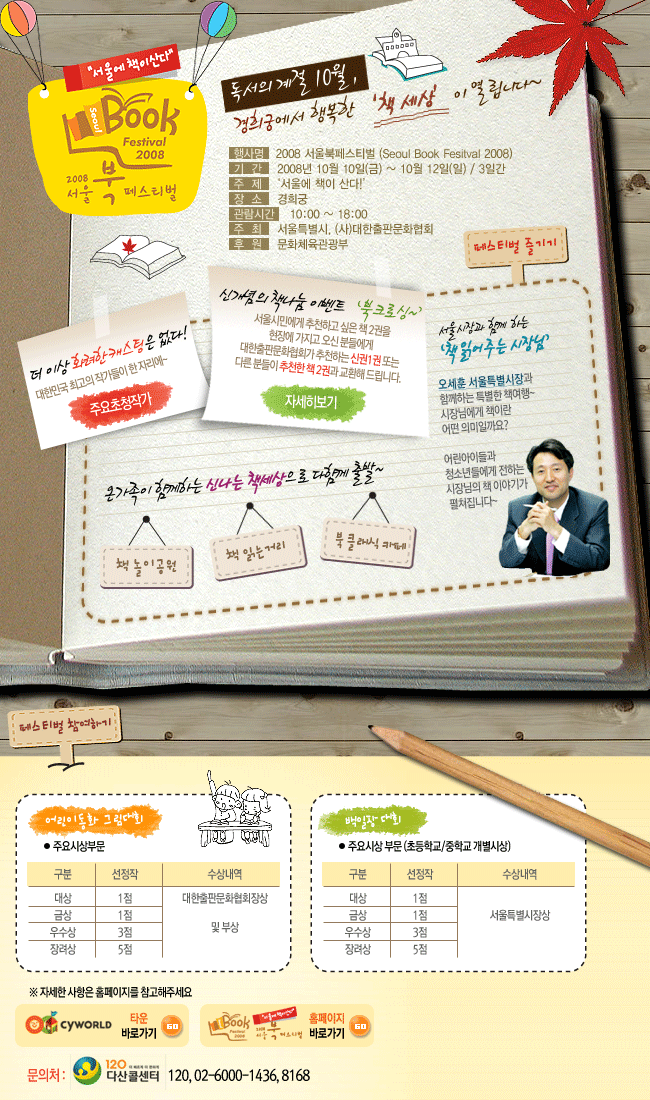 "서울에 책이 산다"
Seoul
Book
Festival
2008
2008
서울 북 페스티벌
독서의 계절 10월,
경희궁에서 행복한 '책 세상' 이 열립니다~
행사명 2008 서울북페스티벌 (Seoul Book Fesitval 2008)
기 간 2008년 10월 10일(금) ~ 10월 12일(일) / 3일간
주 제 '서울에 책이 산다!'
장 소 경희궁
관람시간 10:00 ~ 18:00
주 최 서울특별시, (사)대한출판문화협회
후 원 문화체육관광부
페스티벌 즐기기
더 이상 화려한 캐스팅은 없다!
대한민국 최고의 작가들이 한 자리에~
주요초청작가
신개념의 책나눔 이벤트 '북크로싱~'
서울시민에게 추천하고 싶은 책 2권을
현장에 가지고 오신 분들에게
대한출판문화협회가 추천하는 신권1권 또는
다른 분들이 추천한 책 2권과 교환해 드립니다.
자세히보기
서울시장과 함께 하는
'책 읽어 주는 시장님'
오세훈 서울특별시장과
함께하는 특별한 책여행~
시장님에게 책이란
어떤 의미일까요?
어린아이들과
청소년들에게 전하는
시장님의 책 이야기가
펼쳐집니다~
온가족이 함께하는 신나는 책세상으로 다함께 출발~
책 놀이공원
책 읽는거리
북 클래식 카페
페스티벌 참여하기
어린이동화 그림대회
● 주요시상부문
구분 선정작 수상내역
대상 1점 대한출판문화협회장상
금상 1점
및 부상
우수상 3점
장려상 5점
백일장 대회
● 주요시상 부문 (초등학교/중학교 개별시상)
구분 선정작 수상내역
대상 1점
금상 1점
서울특별시장상
우수상 3점
장려상 5점
※ 자세한 사항은 홈페이지를 참고해주세요
CYWORLD
타운
바로가기
GO
"서울에 책이 산다"
Book
Festival
2008
2008
서울 북 페스티벌
홈페이지
바로가기
GO
문의처 :
120
다산콜센터
120, 02-6000-1436, 8168